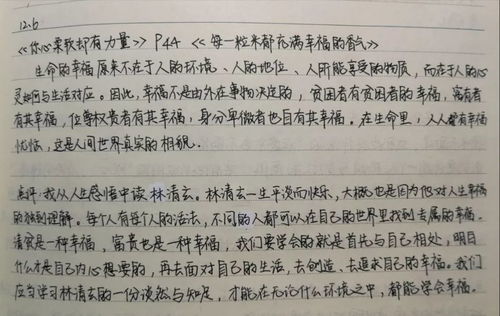 12.6
《你心柔软却有力量》 P44 《每一粒米都充满幸福的香气》
生命的幸福原来不在于人的环境、人的地位、人所能享受的物质，而在于人的心
灵如何与生活对应。因此，幸福不是由外在事物决定的，贫困者有贫困者的幸福，富有者
有其幸福，位尊权贵者有其幸福，身分卑微者也自有其幸福。在生命里，人人都有幸福
忧恼，这是人间世界真实的相貌。
点评：我从人生感悟中读林清玄。林清玄一生平淡而快乐，大概也是因为他对人生幸福
的独到理解。每个人有每个人的活法，不同的人都可以在自己的世界里找到专属的幸福。
清贫是一种幸福，富贵也是一种幸福，我们要学会的就是首先与自己相处，明白
什么才是自己内心想要的，再去面对自己的生活，去创造、去追求自己的幸福。我们
应当学习林清玄的一份淡然与知足，才能在无论什么环境之中，都能学会幸福。